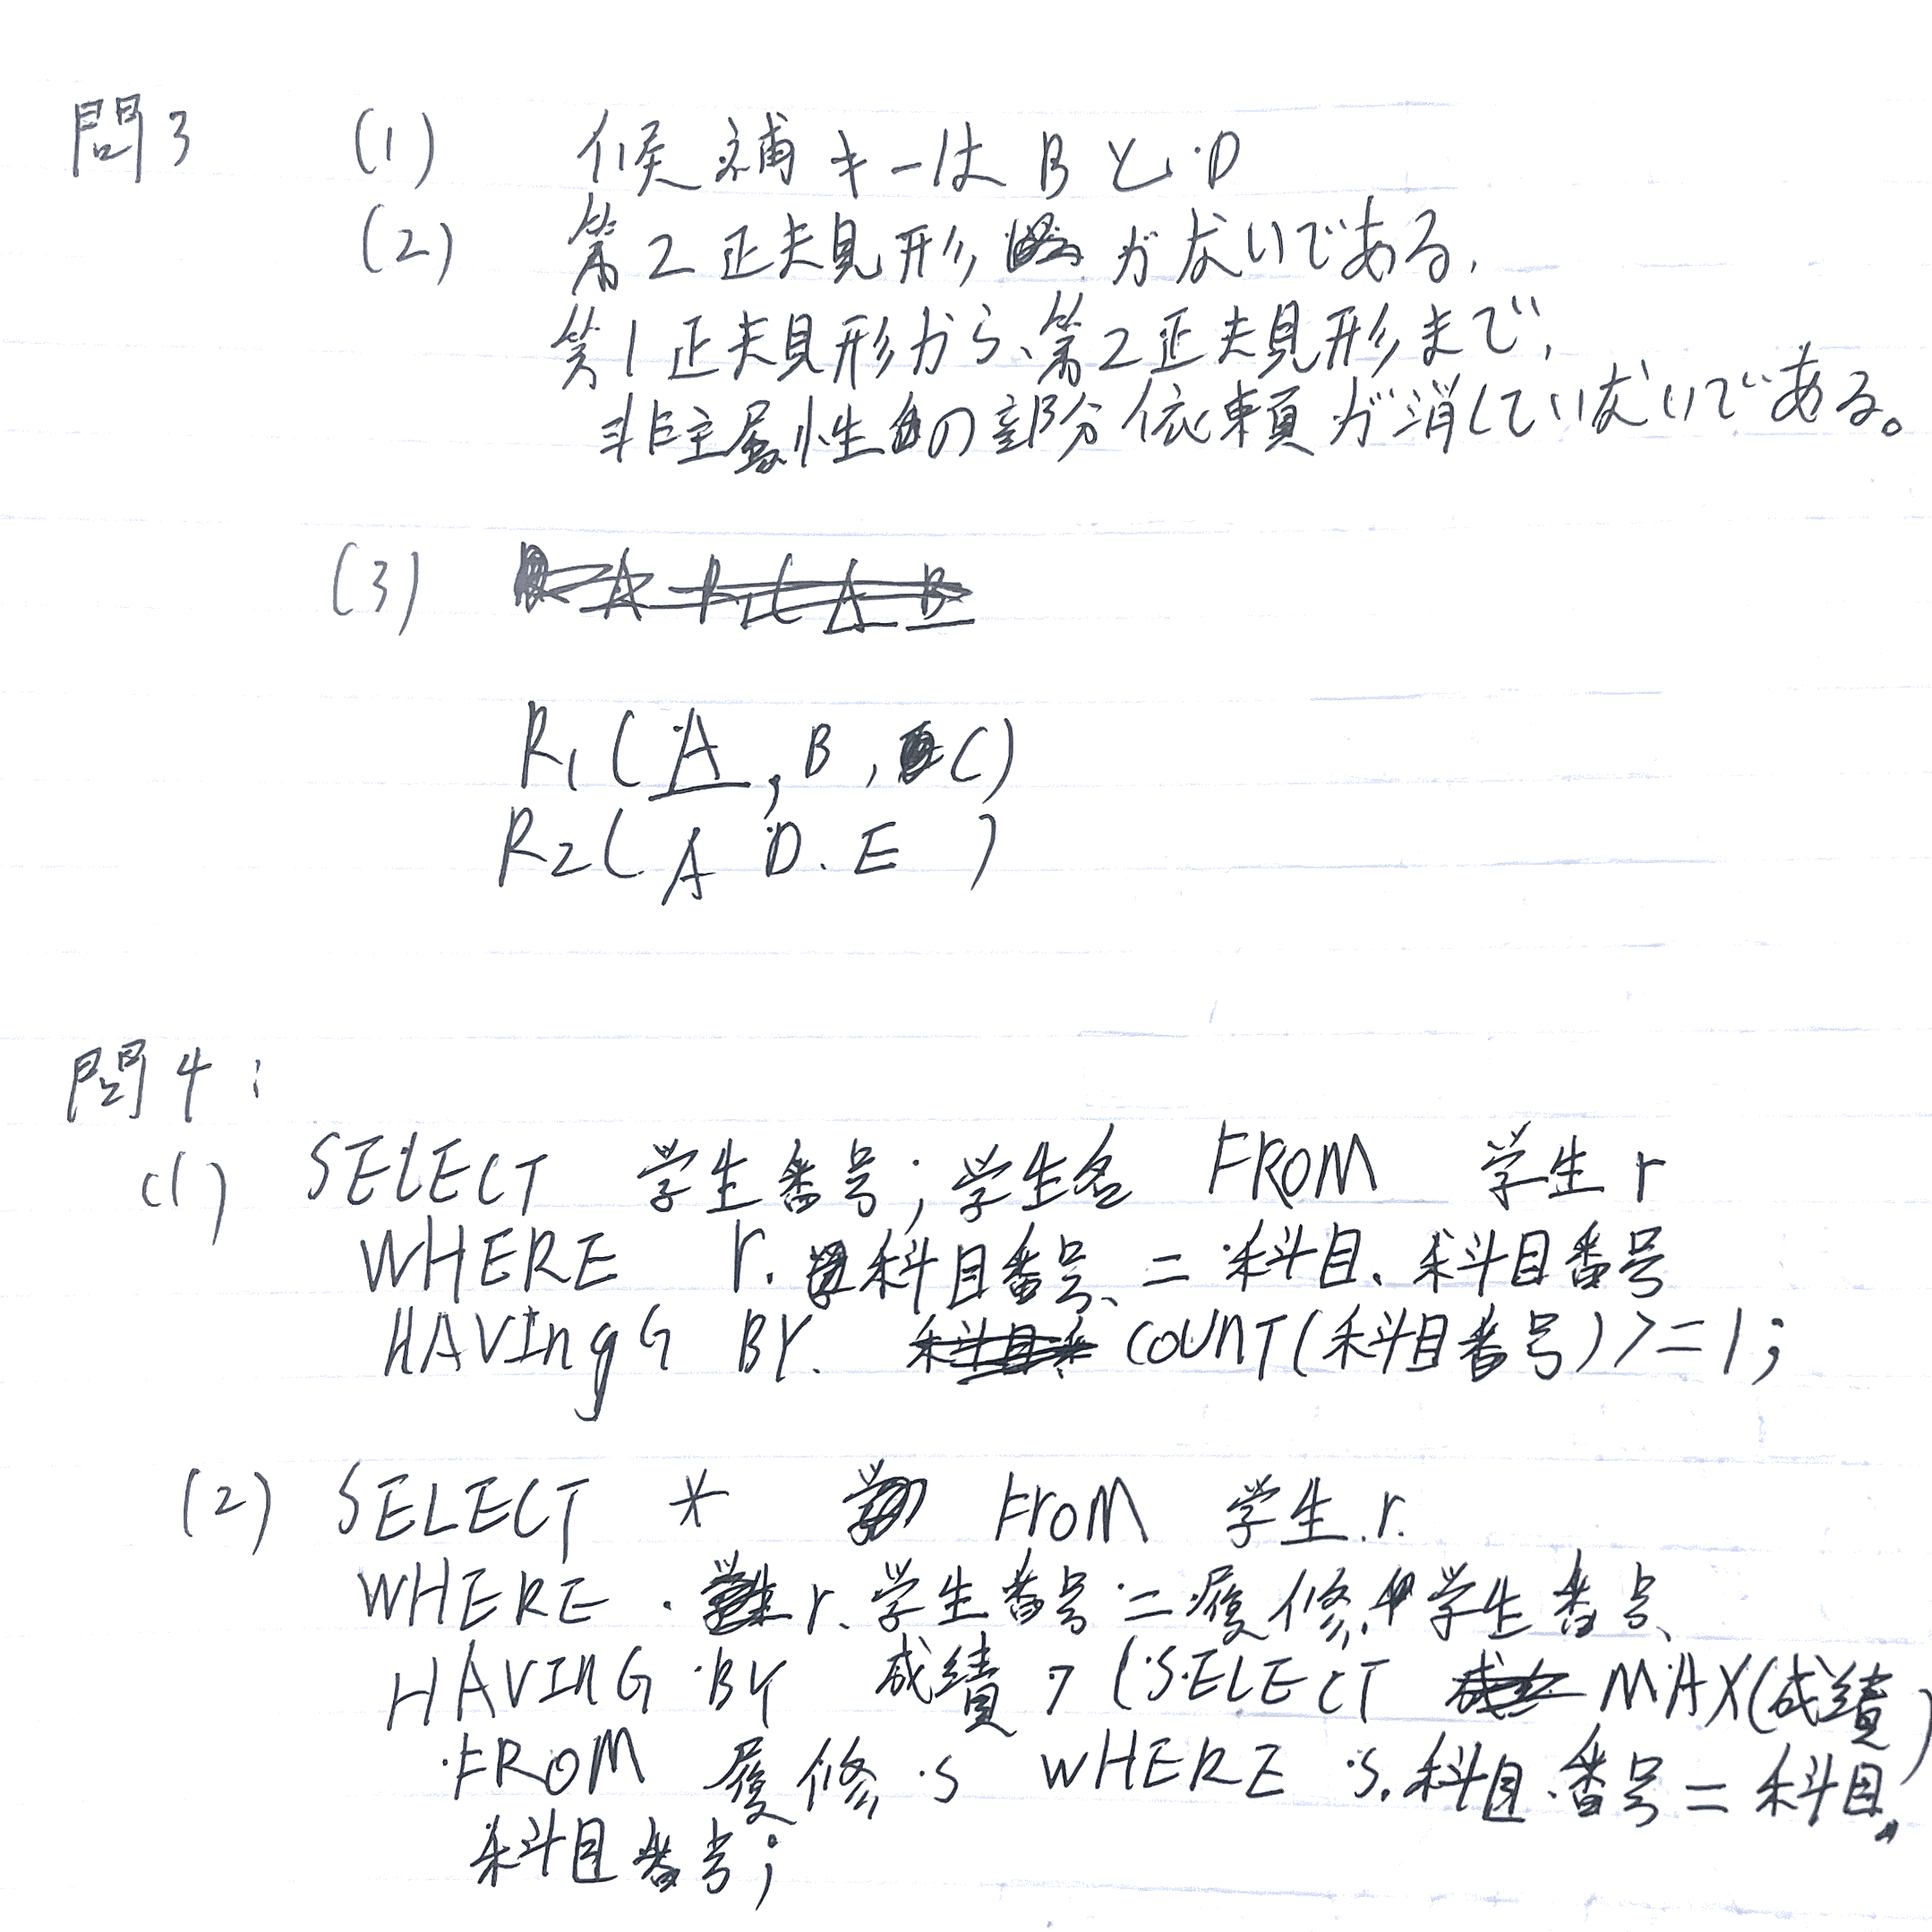 問3 (1) 候補キーは B と D
(2) 第2正規形 がないである.
第1正規形から、第2正規形まで,
非主属性の部分依頼が消していないである。
(3)
R1 ( A , B , C )
R2 ( A D. E )
問4 :
(1) SELECT 学生番号 ; 学生名 FROM 学生 r
WHERE r. 科目番号 = 科目. 科目番号
HAVIngG BY. COUNT(科目番号) >= 1 ;
(2) SELECT * FroM 学生 r.
WHERE r. 学生番号 = 履修. 学生番号
HAVING BY 成績 > (SELECT MAX(成績)
FROM 履修 s WHERE s. 科目番号 = 科目.
科目番号 ;